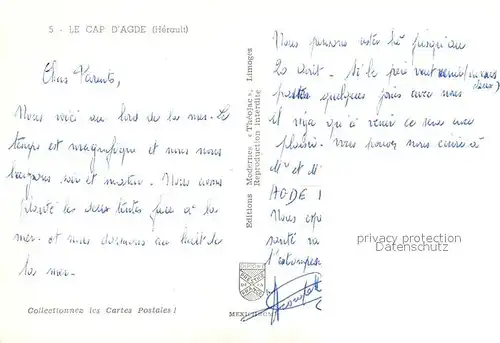 5 - LE CAP D'AGDE (Hérault)
Chers Parents,
Nous voici au bord de la mer. Le
temps est magnifique et nous nous
baignons soir et matin. Nous avons
planté les deux tentes face à la
mer. et nous dormons au bruit de
la mer.
Collectionnez les Cartes Postales !
Editions Modernes « Théojac », Limoges
Reproduction interdite
Nous pensons rester là jusqu'au
20 août. Si le père veut venir
passer quelques jours avec nous
il n'y a qu'à venir ce sera avec
plaisir. Vous pouvez nous écrire à
Mr et M
AGDE
Nous esp
santé
privacy protection
Datenschutz